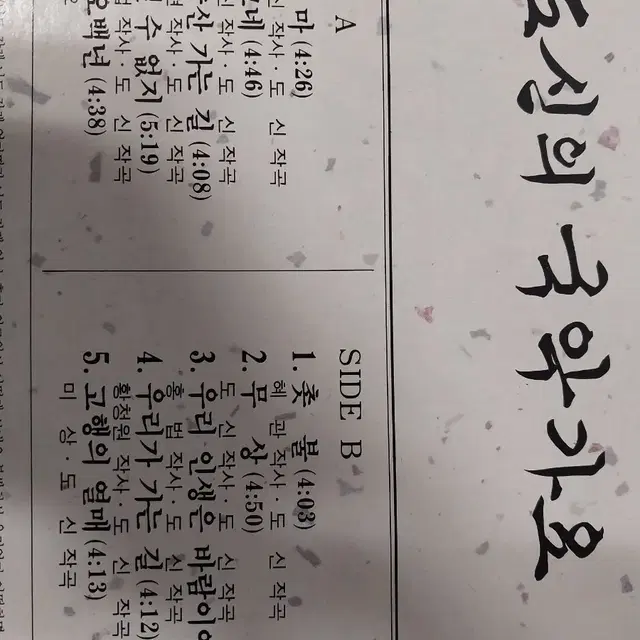 신의 국악가요
A
마 (4:26)
작사·도 신 작곡
네 (4:46)
신 작사·도 신 작곡
산 가는 길 (4:08)
작사·도 신 작곡
수 없지 (5:19)
작사·도 신 작곡
오백년 (4:38)
SIDE B
1. 촛 불 (4:03)
혜 관 작사·도 신 작곡
2. 무 상 (4:50)
도 신 작사·도 신 작곡
3. 우리 인생은 바람이
홍 범 작사·도 신 작곡
4. 우리가 가는 길 (4:12)
황청원 작사·도 신 작곡
5. 고행의 열매 (4:13)
미 상·도 신 작곡